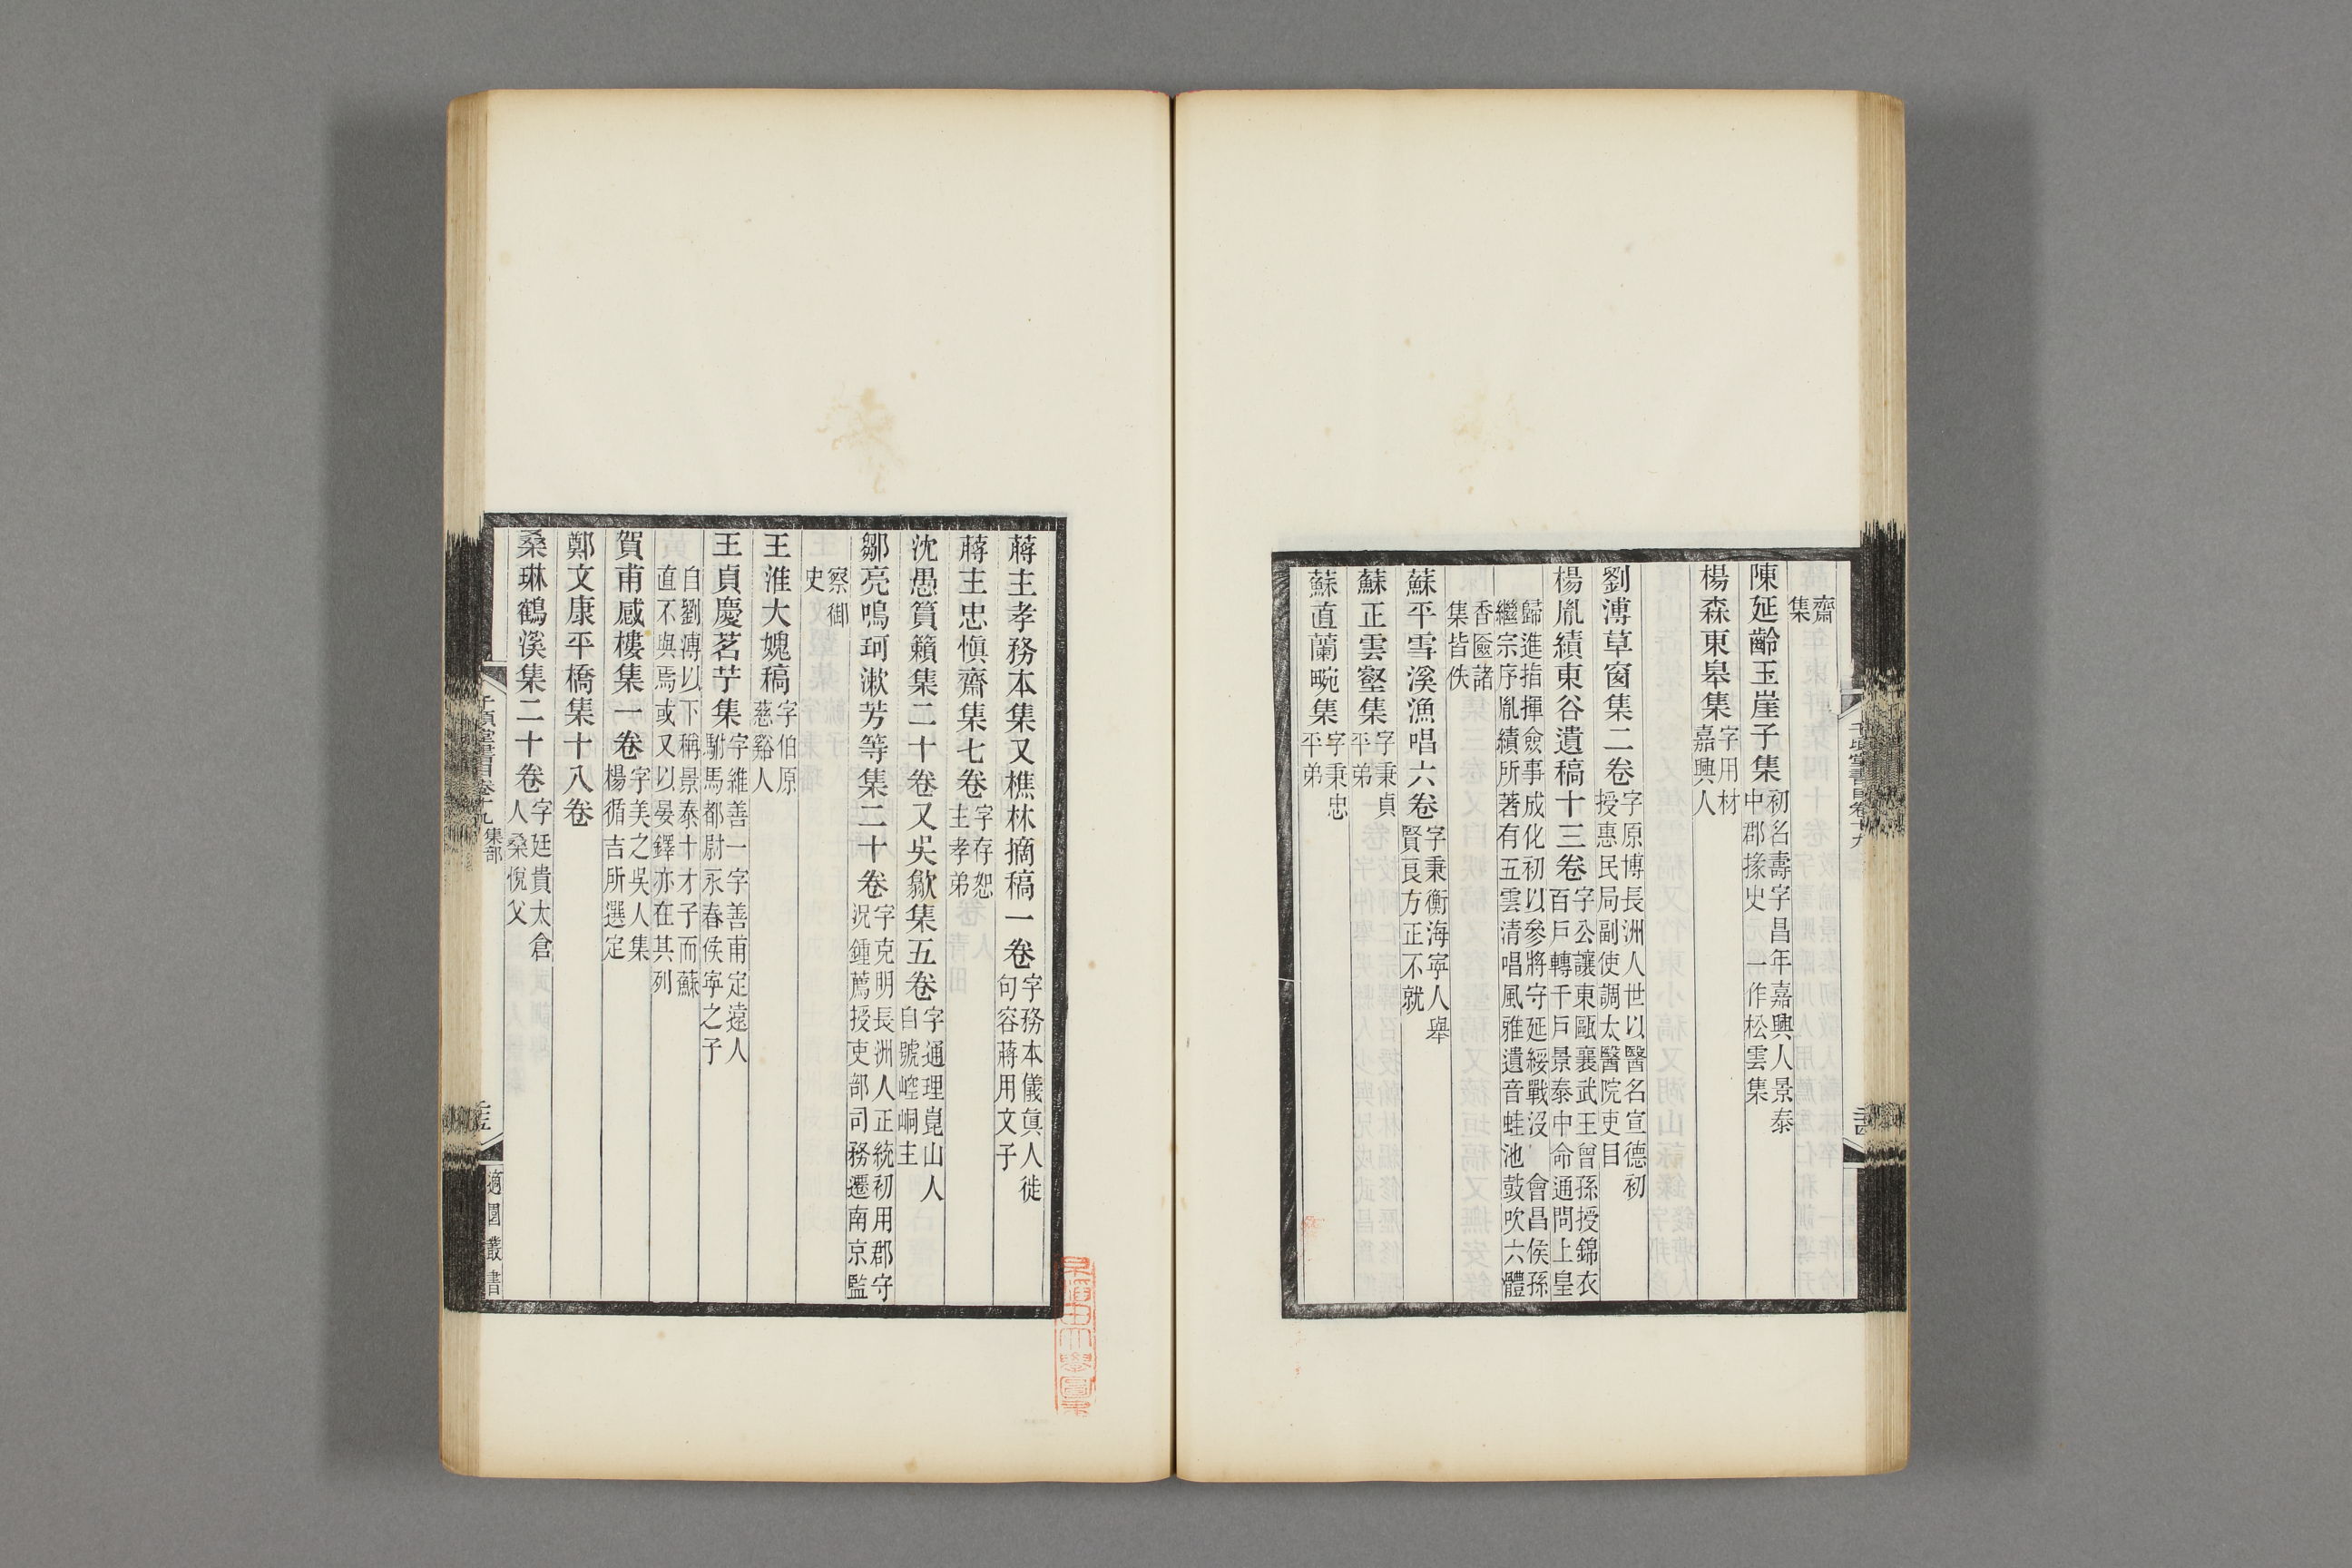 齋集
陳延齡玉崖子集初名壽字昌年嘉興人景泰中郡掾史一作松雲集
楊森東皋集字用材嘉興人
劉溥草窗集二卷字原博長洲人世以醫名宣德初授惠民局副使調太醫院吏目
楊胤績東谷遺稿十三卷字公讓東甌襄武王曾孫授錦衣百戶轉千戶景泰中命通問上皇
歸進指揮僉事成化初以參將守延綏戰沒 會昌侯孫繼宗序胤績所著有五雲清唱風雅遺音蛙池鼓吹六體
香匳諸集皆佚
蘇平雪溪漁唱六卷字秉衡海寧人舉賢良方正不就
蘇正雲壑集字秉貞平弟
蘇直蘭畹集字秉忠平弟
千頃堂書目卷十九
蔣主孝務本集又樵林摘稿一卷字務本儀真人徙句容蔣用文子
蔣主忠慎齋集七卷字存恕主孝弟
沈愚篔籟集二十卷又吳歈集五卷字通理崑山人自號崆峒主
鄒亮鳴珂漱芳等集二十卷字克明長洲人正統初用郡守況鍾薦授吏部司務遷南京監
察御史
王淮大媿稿字伯原慈谿人
王貞慶茗芋集字維善一字善甫定遠人駙馬都尉永春侯寧之子
自劉溥以下稱景泰十才子而蘇直不與焉或又以晏鐸亦在其列
賀甫感樓集一卷字美之吳人集楊循吉所選定
鄭文康平橋集十八卷
桑琳鶴溪集二十卷字廷貴太倉人桑悅父
千頃堂書目卷十九 集部
適園叢書